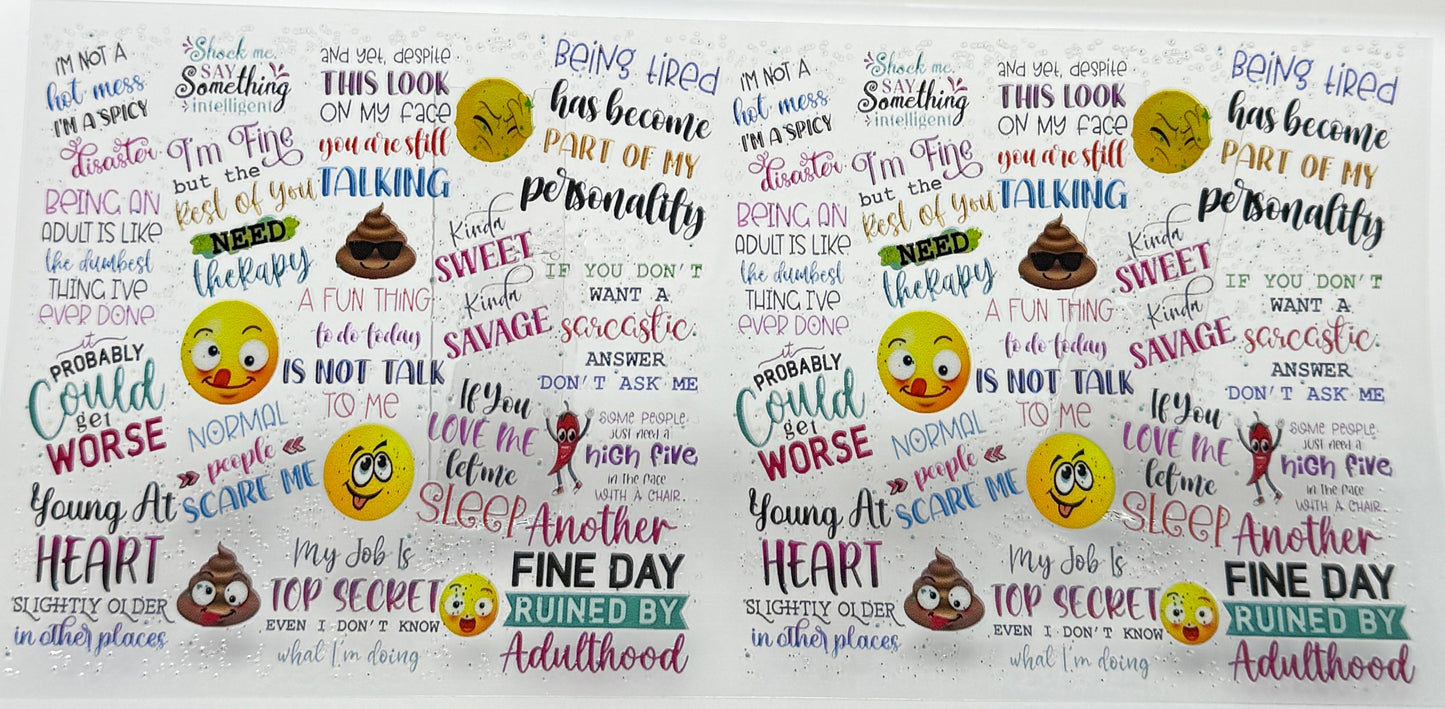 I'M NOT A
hot mess
I'M A SPICY
disaster
Shock me,
SAY
Something
intelligent
and yet, despite
THIS LOOK
ON MY FACE
you are still
TALKING
Being tired
has become
PART OF MY
personality
I'm Fine
but the
Rest of You
NEED
therapy
BEING AN
ADULT IS LIKE
the dumbest
THING I'VE
EVER DONE
Kinda
SWEET
Kinda
SAVAGE
IF YOU DON'T
WANT A
sarcastic
ANSWER
DON'T ASK ME
A FUN THING
to do today
IS NOT TALK
TO ME
it
PROBABLY
Could
get
WORSE
NORMAL
people
SCARE ME
If You
LOVE ME
let me
SLEEP
SOME PEOPLE
JUST NEED A
HIGH FIVE
IN THE FACE
WITH A CHAIR.
Young At
HEART
SLIGHTLY OLDER
in other places
My Job Is
TOP SECRET
EVEN I DON'T KNOW
what I'm doing
Another
FINE DAY
RUINED BY
Adulthood
I'M NOT A
hot mess
I'M A SPICY
disaster
Shock me,
SAY
Something
intelligent
and yet, despite
THIS LOOK
ON MY FACE
you are still
TALKING
Being tired
has become
PART OF MY
personality
I'm Fine
but the
Rest of You
NEED
therapy
BEING AN
ADULT IS LIKE
the dumbest
THING I'VE
EVER DONE
Kinda
SWEET
Kinda
SAVAGE
IF YOU DON'T
WANT A
sarcastic
ANSWER
DON'T ASK ME
A FUN THING
to do today
IS NOT TALK
TO ME
it
PROBABLY
Could
get
WORSE
NORMAL
people
SCARE ME
If You
LOVE ME
let me
SLEEP
SOME PEOPLE
JUST NEED A
HIGH FIVE
IN THE FACE
WITH A CHAIR.
Young At
HEART
SLIGHTLY OLDER
in other places
My Job Is
TOP SECRET
EVEN I DON'T KNOW
what I'm doing
Another
FINE DAY
RUINED BY
Adulthood